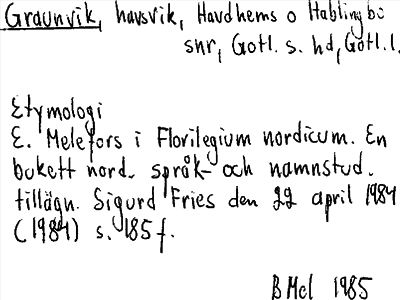 Graunvik, havsvik, Havdhems o Hablingbo
snr, Gotl. s. hd, Gotl. l.
Etymologi
E. Melefors i Florilegium nordicum. En
bukett nord. språk- och namnstud.
tillägn. Sigurd Fries den 22 april 1984
(1984) s. 185 f.
BMcl 1985